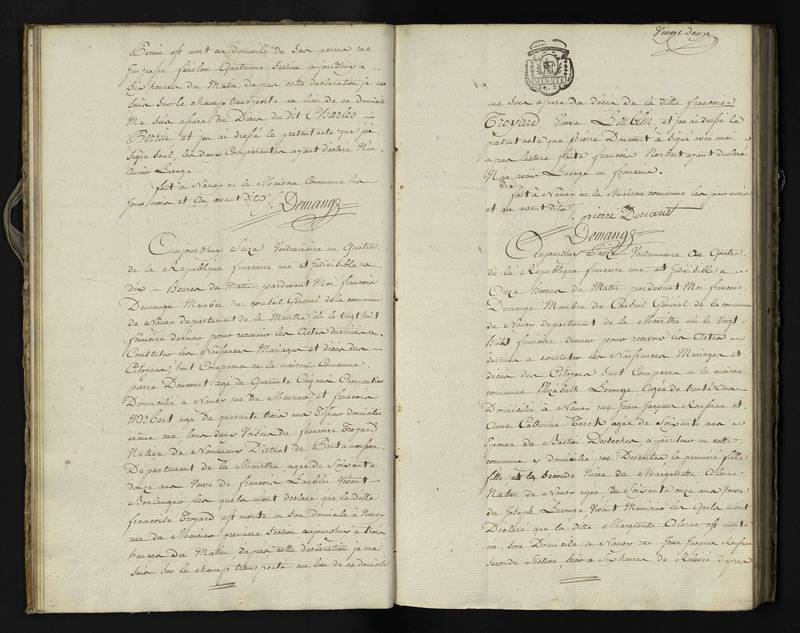 Perrin est mort au domicile de ses peres rue
Quatrieme Section aujourdhuy a
Six heures du Matin dapres cette declaration je me
suis sur le champ transporté au lieu de ce domicile
Me suis assuré du Deces du dit Charles
Perrin et jen ai dressé le present acte que jai
signé seul, les deux Comparants ayant declaré N'en
avoir Lusage
fait a Nancy en la Maison Commune les
jour mois et an avant dits Demange
Aujourdhui Seize Vendemiaire an Quatre
de la Republique francaise une et Indivisible a
dix heures du Matin pardevant Moi francois
Demange Membre du Conseil General de la commune
de Nancy departement de la Meurthe élu le vingt huit
frimaire dernier pour recevoir les Actes destinés a
Constater les Naissances Mariages et décès des
Citoyens, sont Comparus en la maison Commune
pierre Doucourt agé de Quarante Cinq ans Charpentier
Domicilié a Nancy rue du Meunier et francois
Norbert agé de quarante trois ans domicilié
même rue tous deux Voisins de francoise Troyard
Native de District de Pont a mousson
Departement de la Meurthe agée de Soixante
douze ans Veuve de francois Loublin Vivant
Boulanger les quels mont declaré que la ditte
francoise Troyard est morte en son domicile a Nancy
rue du Meunier premiere Section aujourdhui a trois
heures du Matin dapres cette declaration je me
suis sur le champ transporté au lieu de ce domicile
Vingt deux
me suis assuré du décès de la ditte francoise
Troyard Veuve Loublin et jen ai dressé le
present acte que Pierre Doucourt a signé avec moi
apres lecture faite francois Norbert ayant declaré
N'en avoir Lusage
fait a Nancy en la Maison commune les jour mois
et an avant dits
pierre Doucourt
Demange
Aujourdhui Seize Vendemiaire an Quatre
de la République francaise une et Indivisible a
Onze heures du Matin pardevant Moi francois
Demange Membre du Conseil General de la commune
de Nancy departement de la Meurthe élu le vingt
huit frimaire dernier pour recevoir les Actes
destinés a constater les Naissances Mariages et
décès des Citoyens sont Comparus en la maison
commune Elizabeth Lerouge Agée de trente ans
Domiciliée a Nancy rue Jean Jacques Rousseau et
Anne Catherine agée de Soixante ans
Epouse de Bastien en cette
commune y domiciliée rue la premiere fille
fille et la Seconde Niece de Marguerite
Native de Nancy agée de Soixante onze ans Veuve
de Joseph Lerouge Vivant les quels mont
Déclaré que la ditte Marguerite est morte
en son Domicile a Nancy rue Jean Jacques Rousseau
seconde Section, hier a Six heures de Relevée dapres